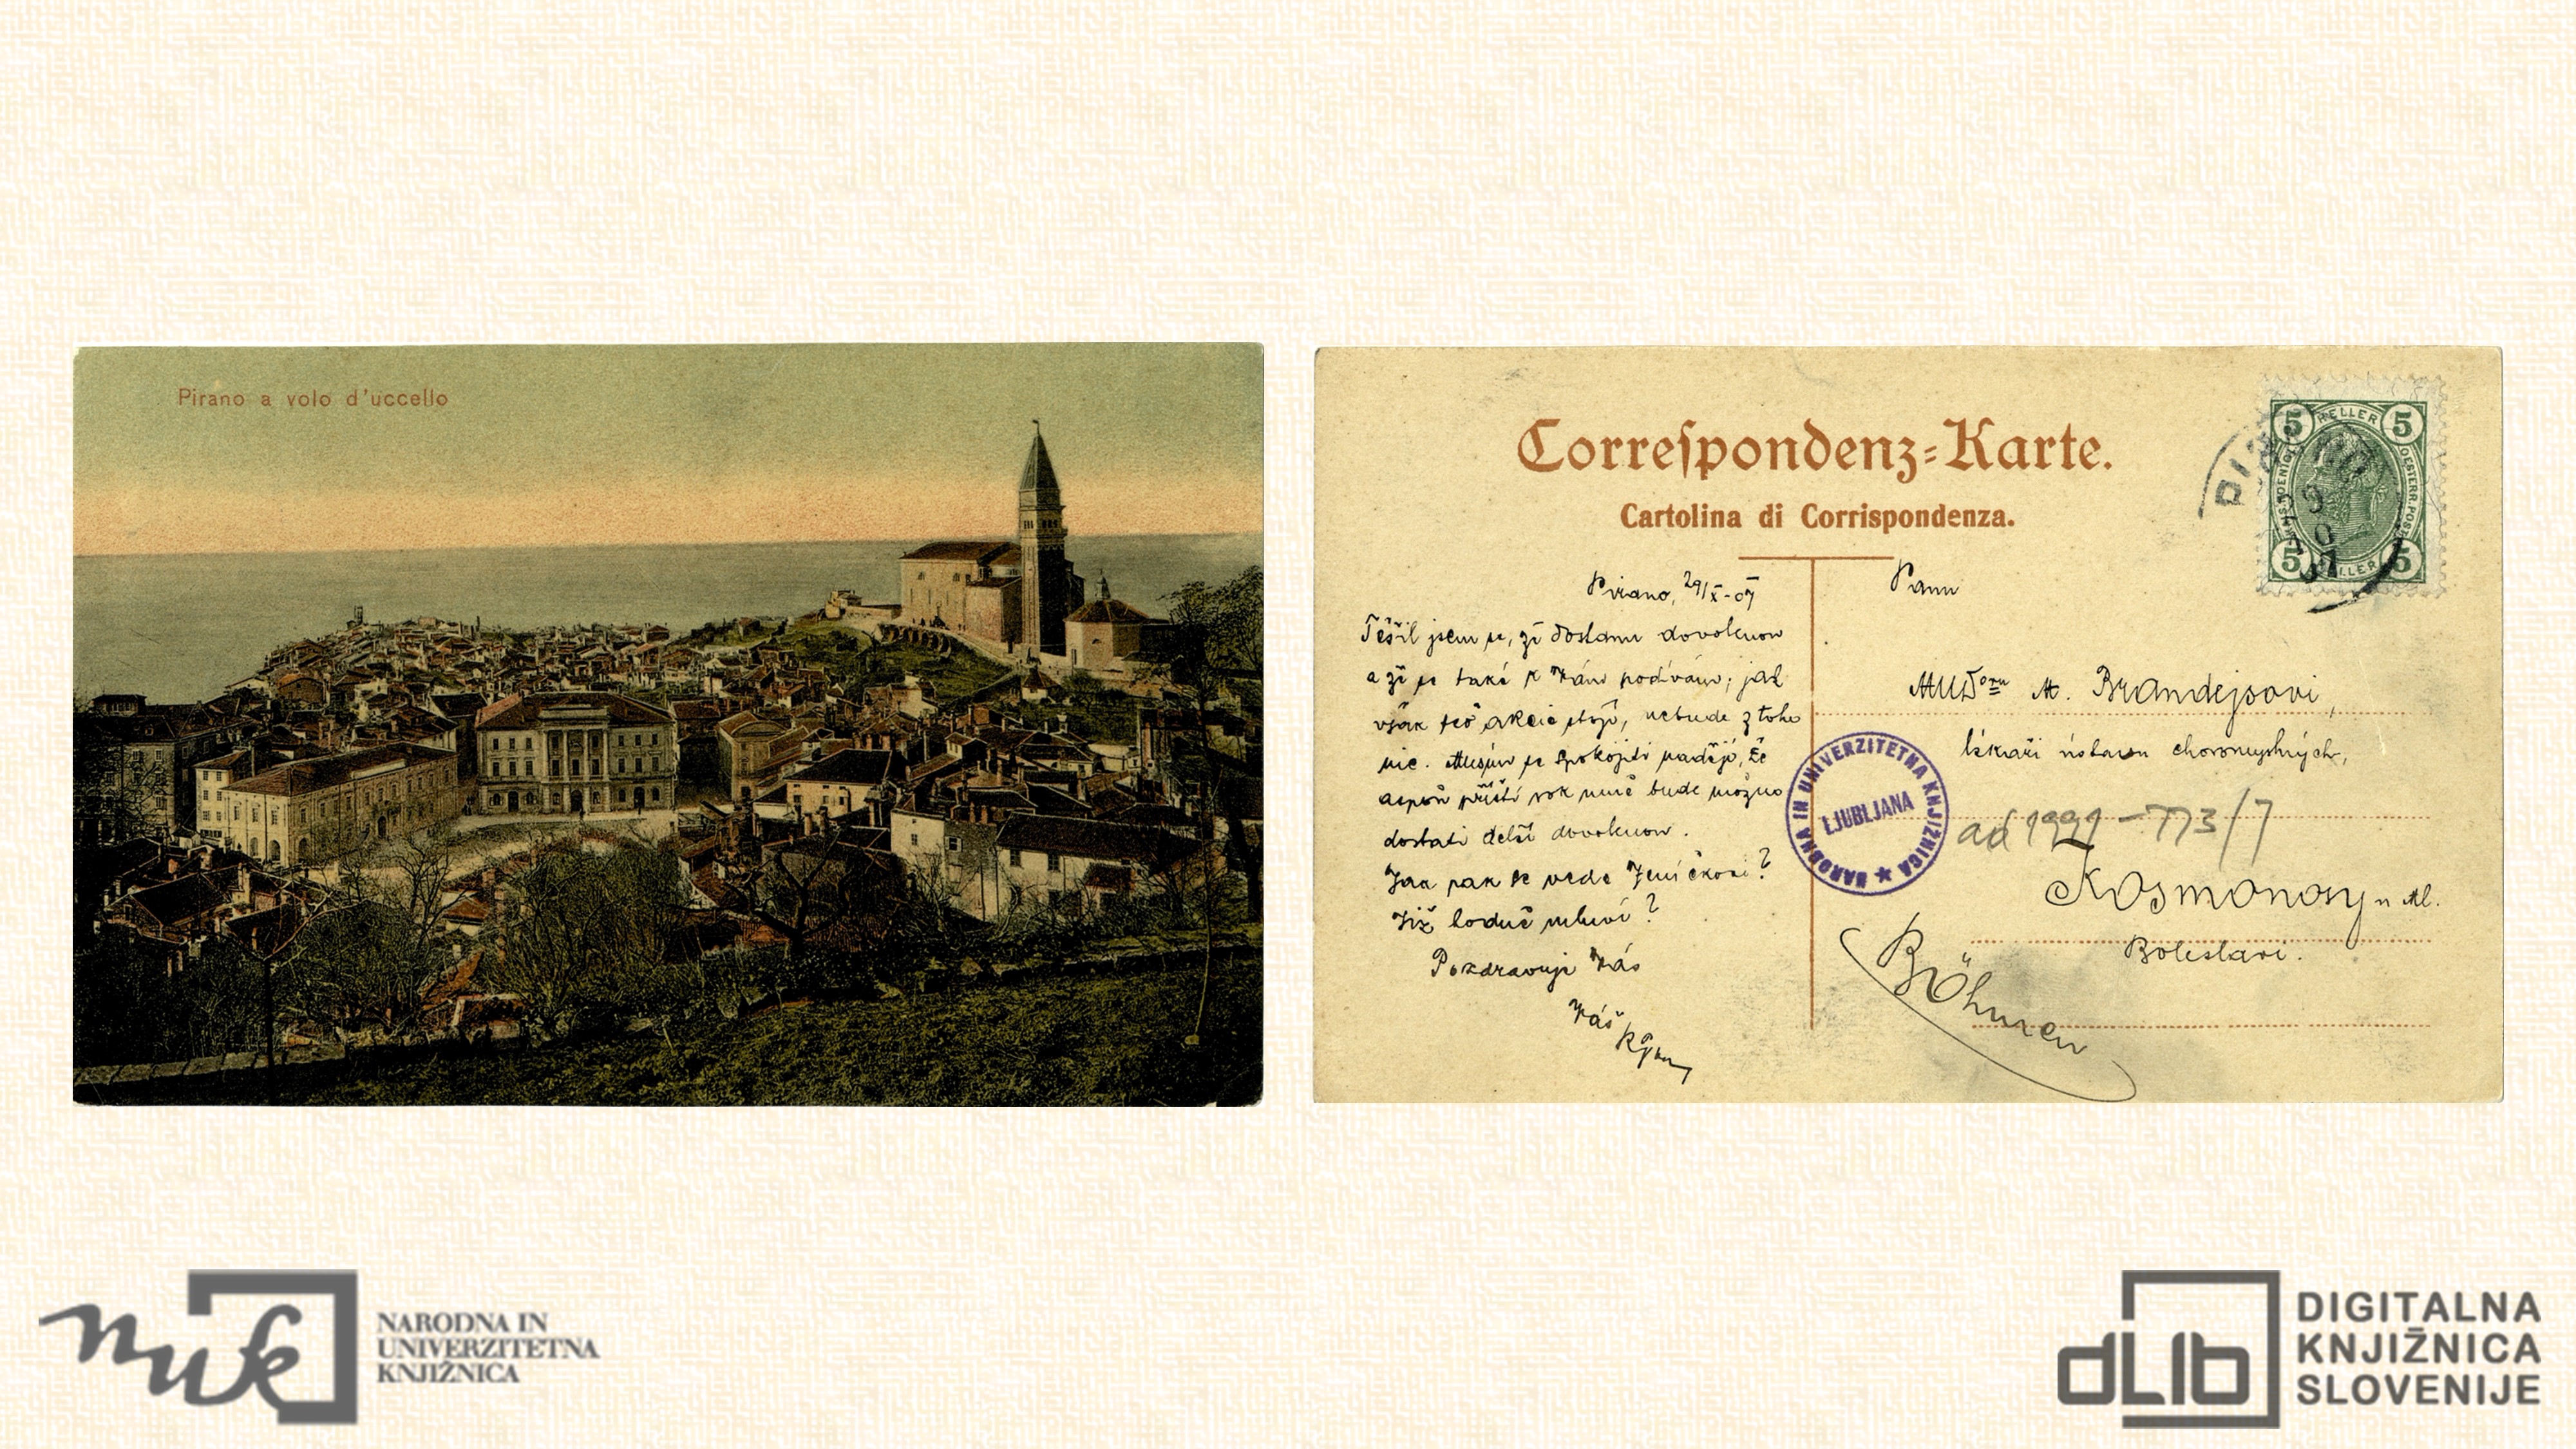 Pirano a volo d'uccello
Correſpondenz=Karte.
Cartolina di Corrispondenza.
5 HELLER 5
5 HELLER 5
Pirano, 29/X-07
Těšil jsem se, že dostanu dovolenou
a že se také k Vám podívám; jak
však teď akcie stojí, nebude z toho
nic. Musím se spokojiti nadějí, že
aspoň příští rok mně bude možno
dostati delší dovolenou.
Jak pak se vede Jeníčkovi?
Již hodně mluví?
Pozdravuje Vás
Váš
Panu
MUDoru M. Brandejsovi,
lékaři ústavu choromyslných,
ad 1991-773/7
Kosmonosy u Ml.
Boleslavi.
Böhmen
NARODNA IN UNIVERZITETNA KNJIŽNICA
LJUBLJANA
nuk
NARODNA IN
UNIVERZITETNA
KNJIŽNICA
dLib
DIGITALNA
KNJIŽNICA
SLOVENIJE